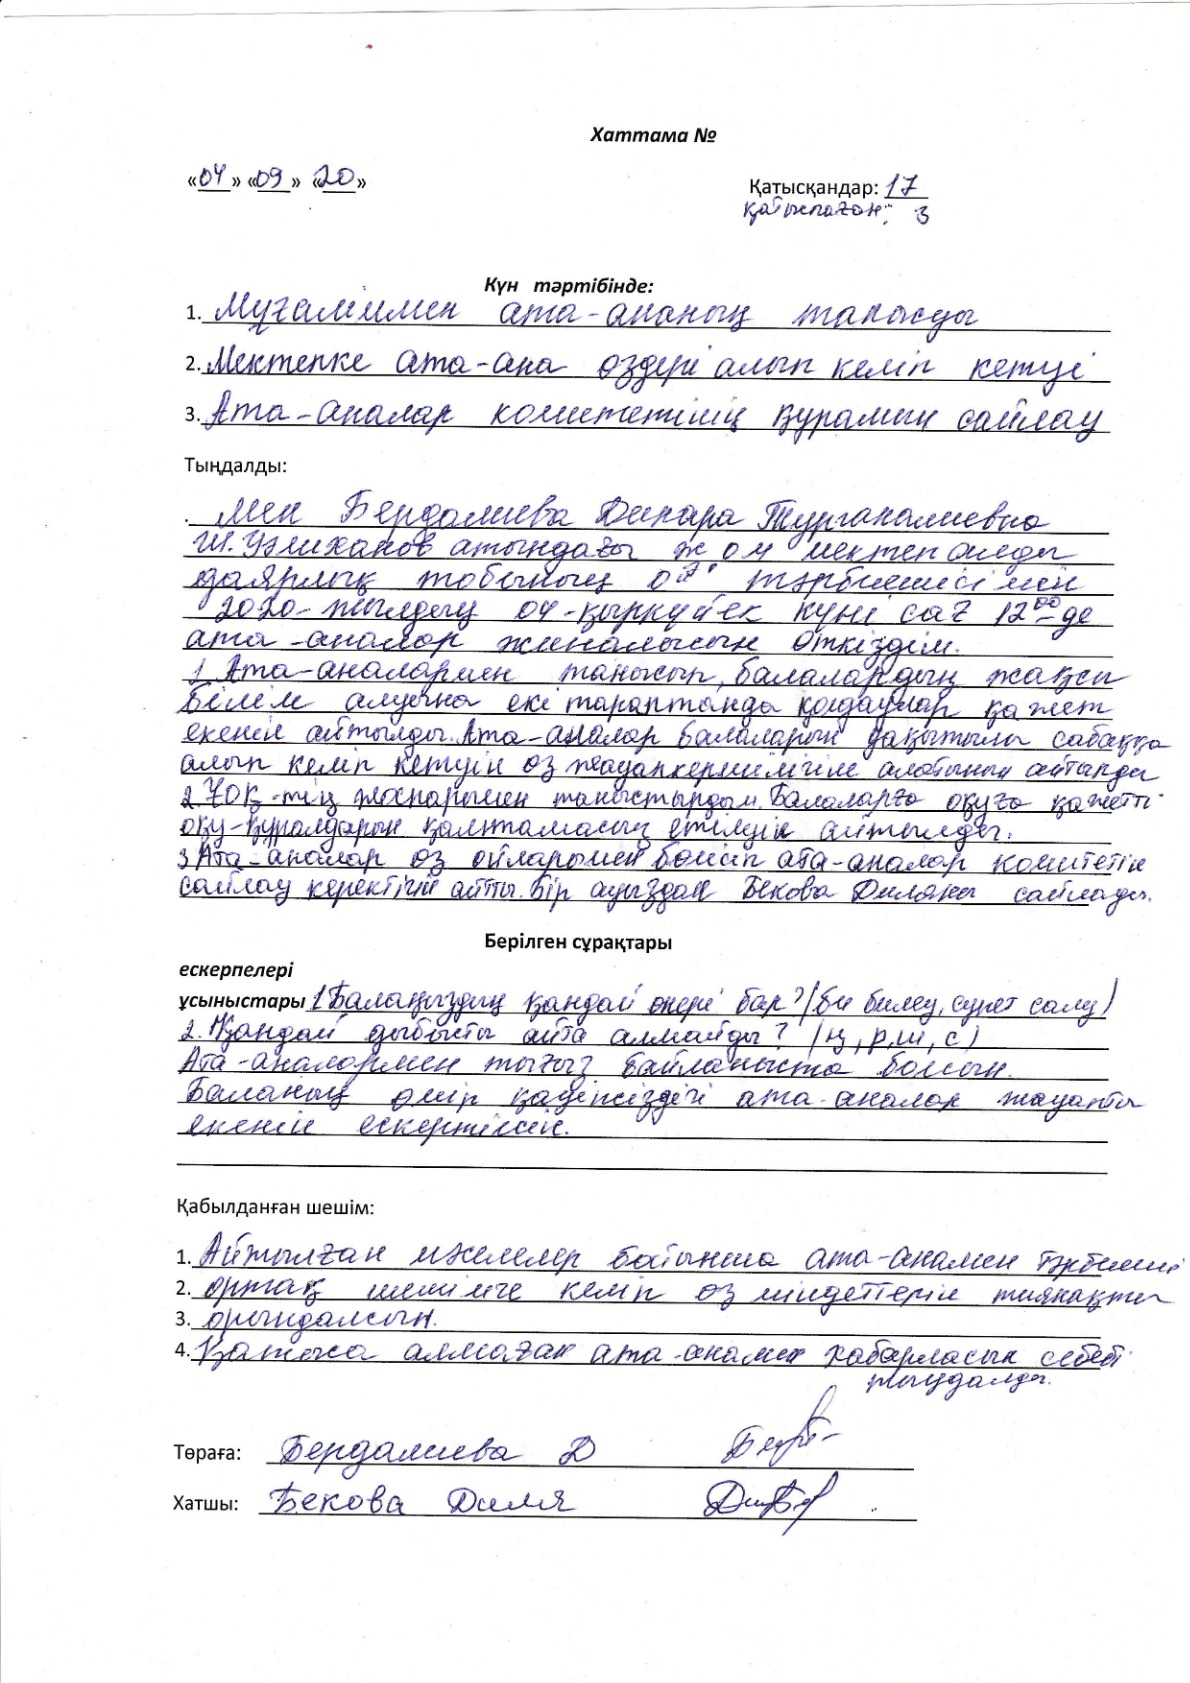 Хаттама №
«04» «09» «20»
Қатысқандар: 17
қатыспаған: 3
Күн тәртібінде:
1. Мұғаліммен ата-ананың
2. Мектепке ата-ана өздері алып келіп кетуі
3. Ата-аналар комитетінің құрамын сайлау
Тыңдалды:
. Мен Бердалиева Динара Турганалиевна
Ш. Уәлиханов атындағы ж о м мектеп алды
даярлық тобының тәрбиешісі мен
2020-жылдың 04-қыркүйек күні сағ 12⁰⁰-де
ата-аналар жиналысын өткіздім.
1 Ата-аналармен танысып, балалардың жақсы
білім алуына екі тараптанда қолдаулар қажет
екенін айтылды. Ата-аналар балаларын уақытылы сабаққа
алып келіп кетуін өз жауапкершілігіне алатынын айтылды
2. ҰОҚ-тің жоспарымен таныстырдым. Балаларға оқуға қажетті
оқу-құралдарын қамтамасың етілуін айтылды.
3 Ата-аналар өз ойларымен бөлісіп ата-аналар комитетін
сайлау керектігін айтты. Бір ауыздан Бекова Диляны сайлады.
Берілген сұрақтары
ескерпелері
ұсыныстары 1 Балаңыздың қандай өнері бар? (би билеу, сурет салу)
2. Қандай дыбысты айта алмайды? (ң, р, ш, с)
Ата-аналармен тығыз байланыста болсын.
Баланың өмір қауіпсіздігі ата-аналар жауапты
екенін ескертілсін.
Қабылданған шешім:
1. Айтылған мәселелер бойынша ата-анамен тәрбиеші
2. ортақ шешімге келіп өз міндеттерін тиянақты
3. орындалсын.
4. Қатыса алмаған ата-анамен хабарласып себебі
тыңдалды.
Төраға: Бердалиева Д
Хатшы: Бекова Диля